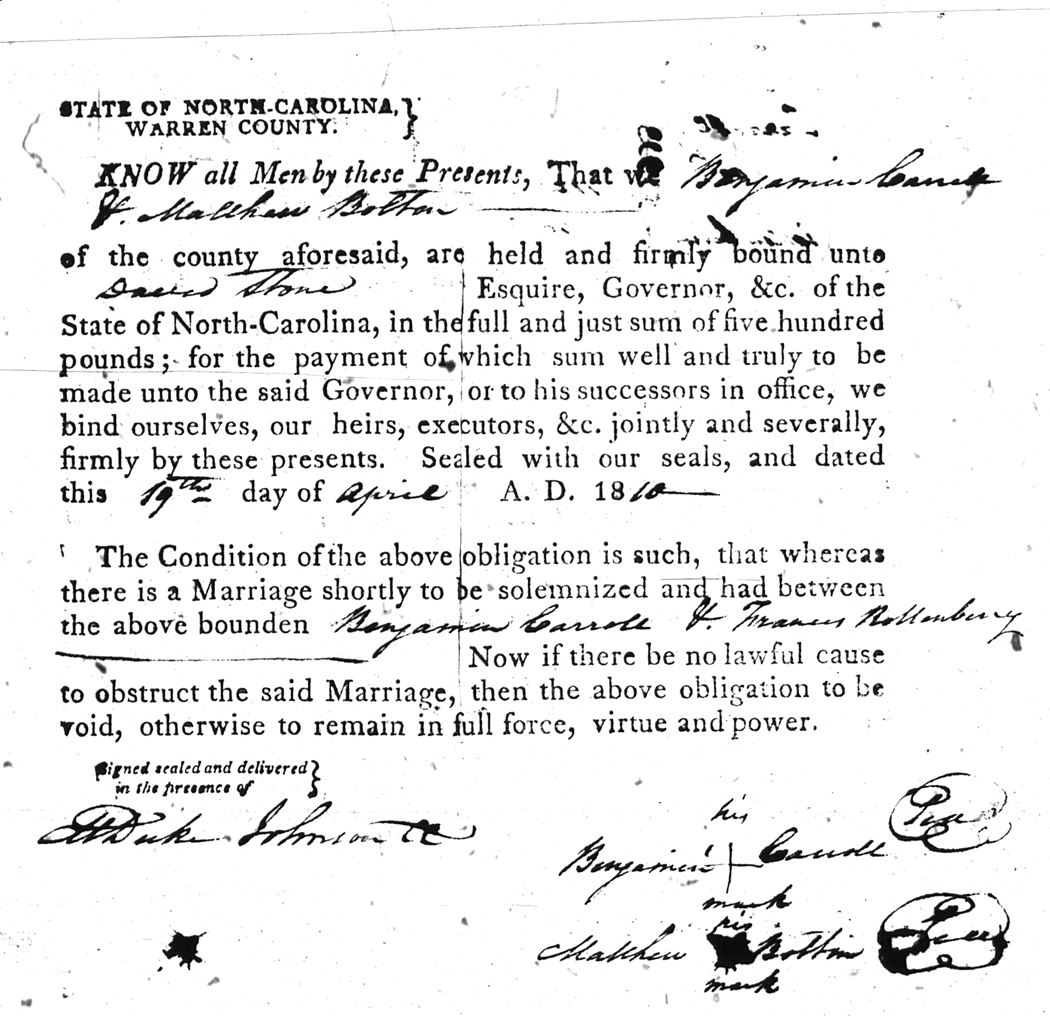 STATE OF NORTH-CAROLINA, }
WARREN COUNTY. }
KNOW all Men by these Presents, That we Benjamin Carroll
& Matthew Bolton
of the county aforesaid, are held and firmly bound unto
David Stone Esquire, Governor, &c. of the
State of North-Carolina, in the full and just sum of five hundred
pounds; for the payment of which sum well and truly to be
made unto the said Governor, or to his successors in office, we
bind ourselves, our heirs, executors, &c. jointly and severally,
firmly by these presents. Sealed with our seals, and dated
this 19th day of April A. D. 1810
The Condition of the above obligation is such, that whereas
there is a Marriage shortly to be solemnized and had between
the above bounden Benjamin Carroll & Francis Rottenberry
Now if there be no lawful cause
to obstruct the said Marriage, then the above obligation to be
void, otherwise to remain in full force, virtue and power.
Signed sealed and delivered }
in the presence of }
Duke Johnson CC
his
Benjamin + Carroll
mark
his
Matthew Bolton Seal
mark